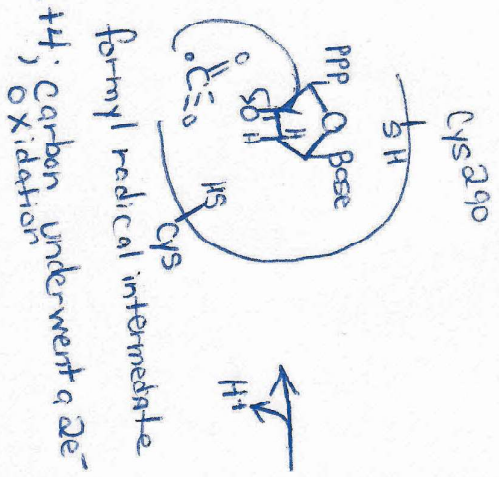 Cys290
SH
PPP
O
Base
H H
HS
Cys
O
C
O
H+
formyl radical intermediate
+4; carbon underwent a 2e⁻
oxidation